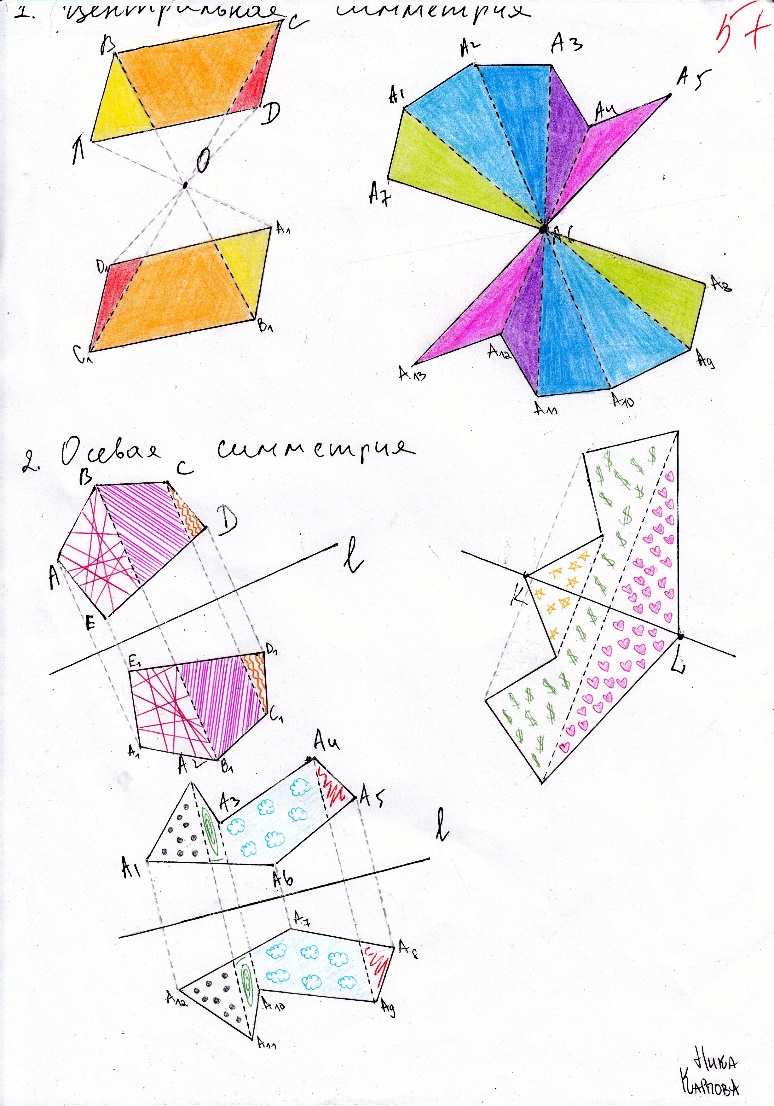 1. Центральная симметрия
5+
B
C
A
D
O
A1
D1
B1
C1
A2
A3
A1
A4
A5
A7
A6
A8
A9
A10
A11
A12
A13
2. Осевая симметрия
B
C
A
D
E
l
E1
D1
A1
B1
C1
K
L
A2
A3
A4
A5
A1
A6
l
A7
A8
A12
A10
A9
A11
Ника
Карпова